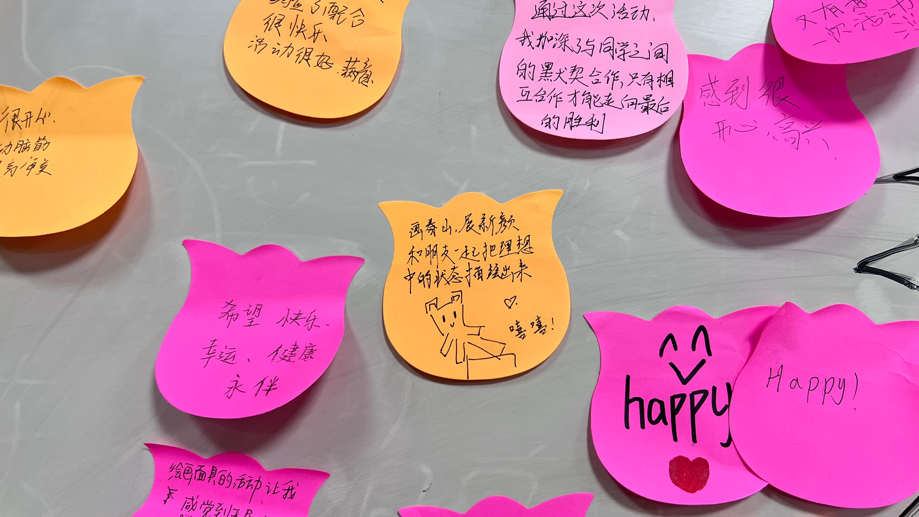 配合
很快乐
活动很好
通过这次活动、
我加深了与同学之间
的默契合作,只有相
互合作才能走向最后
的胜利
又有
一次活动
感到很
开心 高兴
很开心、
动脑筋的
画春山、展新颜
和朋友一起把理想
中的状态描绘出来
嘻嘻!
希望 快乐、
幸运、健康
永伴
happy
Happy!
绘画面具的活动让我
感觉到